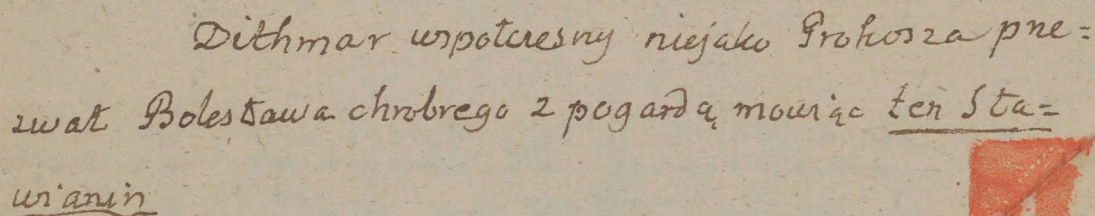 Dithmar wspołczesny niejako Prokosza prze=
zwał Bolesława chrobrego z pogardą mowiąc ten Sła=
wianin